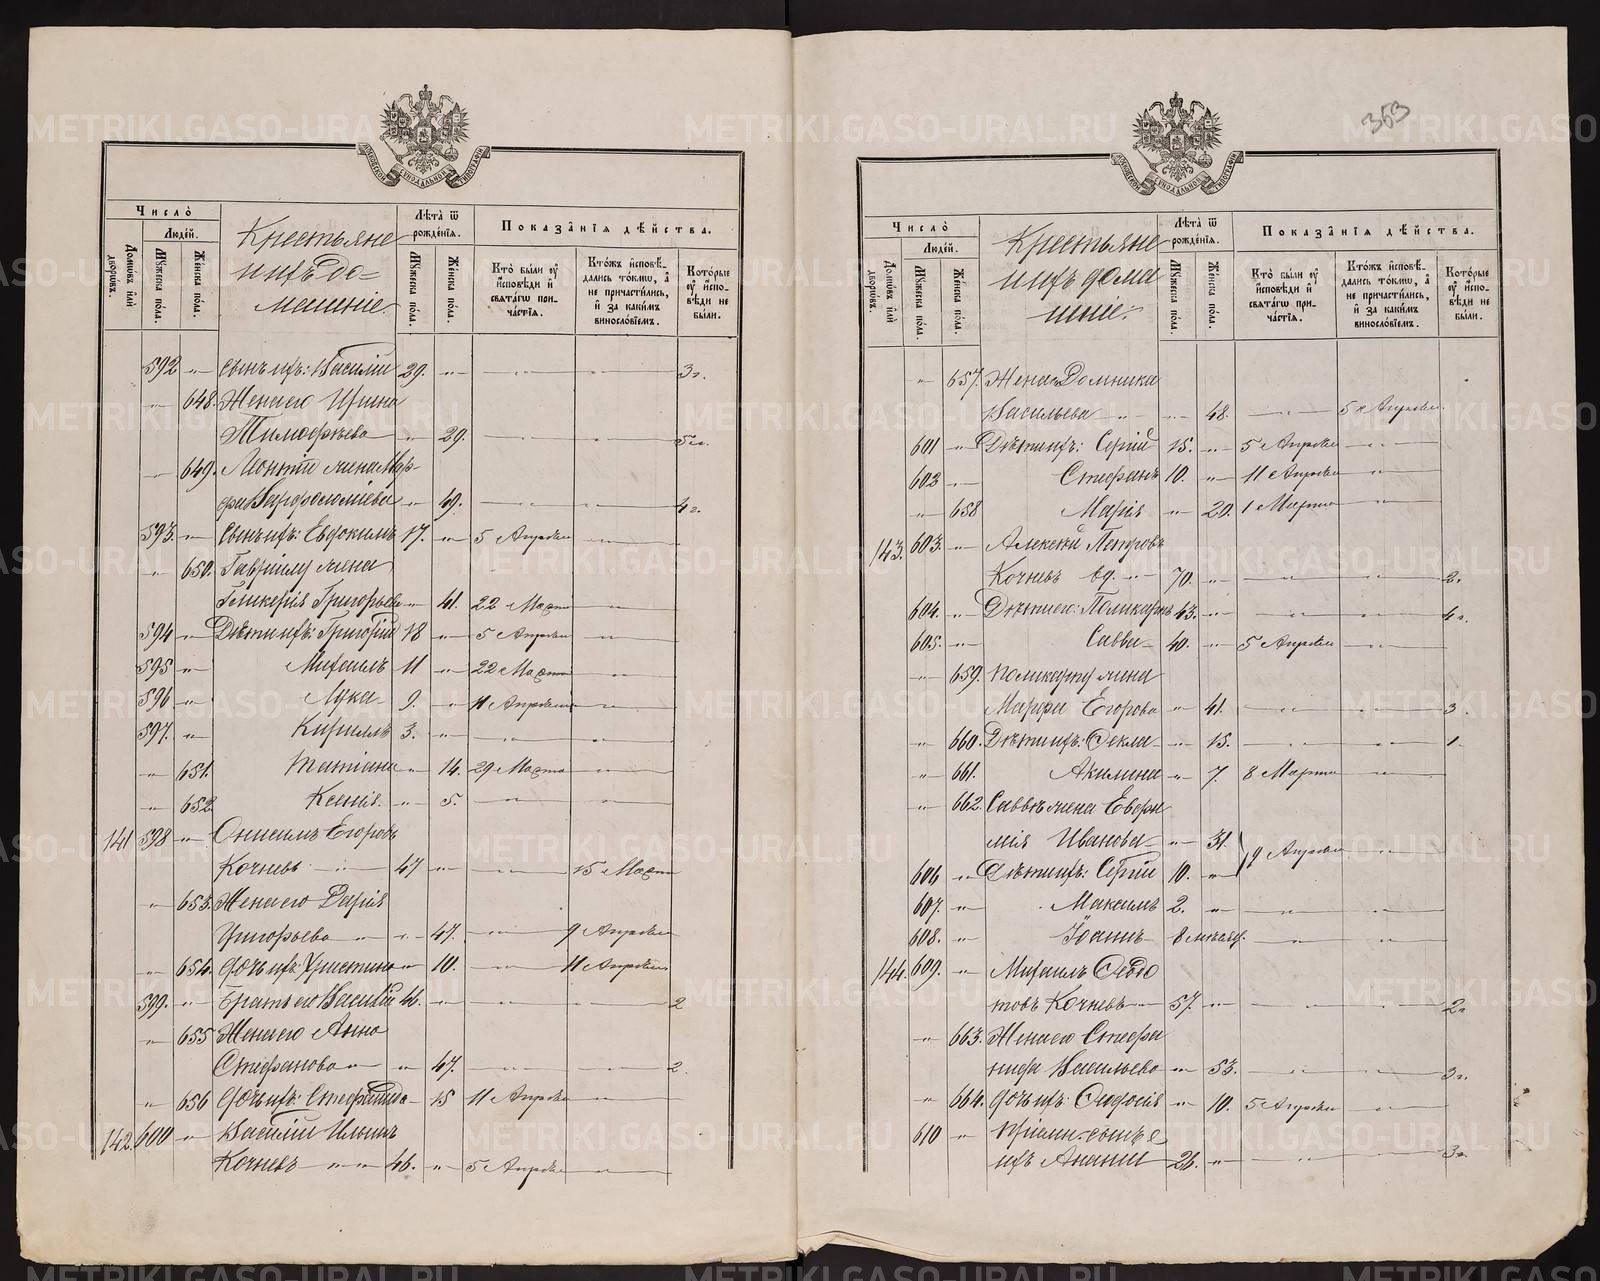 353
Число̀
Людей.
Домѡвъ и҆лѝ дворѡвъ.
Мꙋжеска пола.
Женска пола.
Крестьяне
ихъ до=
машніе.
Лѣта̀ ѿ рожденїѧ.
Мꙋжеска пола.
Женска пола.
Показанїѧ дѣйства.
Кто̀ были оу҆ и҆сповѣди и҆ свѧтагѡ причастїѧ.
Ктожъ и҆сповѣдались токмѡ, а҆ не причастились, и҆ за какимъ винословїемъ.
Которые оу҆ и҆сповѣди не были.
592 -"- Сынъ ихъ: Василій 29. -"- -"- -"- 3г.
-"- 648. Жена его Ирина
Тимофѣева -"- 29. -"- -"- 5г.
-"- 649. Леонтія жена Мар-
фа Варфоломѣева -"- 49. -"- -"- 4г.
593. -"- Сынъ ихъ: Евдокимъ 17. -"- 5 Апрѣля -"-
-"- 650. Гавріилу жена
Гликерія Григорьева -"- 41. 22 Марта -"-
594 -"- Дѣти ихъ: Григорій 18 -"- 5 Апрѣля -"-
595 -"- Михаилъ 11 -"- 22 Марта -"-
596 -"- Лука 9. -"- 11 Апрѣля -"-
597. -"- Кириллъ 3. -"- -"- -"-
-"- 651. Татіана -"- 14. 29 Марта -"-
-"- 652 Ксенія. -"- 5. -"- -"-
141 598 -"- Онисимъ Егоровъ
Кочневъ -"- 47 -"- -"- 15 Март
-"- 653. Жена его Дарія
Григорьева -"- -"- 47. -"- 9 Апрѣля
-"- 654. Дочь ихъ: Христина -"- 10. -"- 11 Апрѣля
599. -"- Братъ его Василій 46. -"- -"- -"- 2
-"- 655 Жена его Анна
Стефанова -"- -"- 47. -"- -"- 2.
-"- 656 Дочь ихъ: Стефанида -"- 15 11 Апрѣля -"-
142. 600 -"- Василій Ильинъ
Кочневъ -"- -"- 46. -"- 5 Апрѣля -"-
Число̀
Людей.
Домѡвъ и҆лѝ дворѡвъ.
Мꙋжеска пола.
Женска пола.
Крестьяне
ихъ дома
шніе.
Лѣта̀ ѿ рожденїѧ.
Мꙋжеска пола.
Женска пола.
Показанїѧ дѣйства.
Кто̀ были оу҆ и҆сповѣди и҆ свѧтагѡ причастїѧ.
Ктожъ и҆сповѣдались токмѡ, а҆ не причастились, и҆ за какимъ винословїемъ.
Которые оу҆ и҆сповѣди не были.
-"- 657. Жена Домника
Васильева -"- -"- 48. -"- 5 Апрѣля.
601 -"- Дѣти ихъ: Сергій 15. -"- 5 Апрѣля -"-
602 -"- Стефанъ 10. -"- 11 Апрѣля -"-
-"- 658 Марія -"- 20. 1 Марта -"-
143. 603. -"- Алексій Петровъ
Кочневъ вд. -"- 70. -"- -"- -"- 2г.
604. -"- Дѣти его: Поликарпъ 43. -"- -"- -"- 4г.
605. -"- Савва 40. -"- 5 Апрѣля -"-
-"- 659. Поликарпу жена
Марфа Егорова -"- 41. -"- -"- 3.
-"- 660. Дѣти ихъ: Ѳекла -"- 15. -"- -"- 1.
-"- 661. Акилина -"- 7. 8 Марта -"-
-"- 662. Саввѣ жена Евфи
мія Иванова -"- 31. 9 Апрѣля -"-
606 -"- Дѣти ихъ: Сергій 10. -"-
607. -"- Максимъ 2. -"- -"- -"-
608. -"- Іоаннъ 8 мѣсяц. -"- -"-
144. 609. -"- Михаилъ Ѳедо
товъ Кочневъ 57. -"- -"- -"- 2г
-"- 663. Жена его Стефа
нида Васильева -"- 53. -"- -"- 3г.
-"- 664. Дочь ихъ: Ѳеодосія -"- 10. 5 Апрѣля -"-
610 -"-
ихъ Ананій 26. -"- -"- -"- 3г.
METRIKI.GASO-URAL.RU